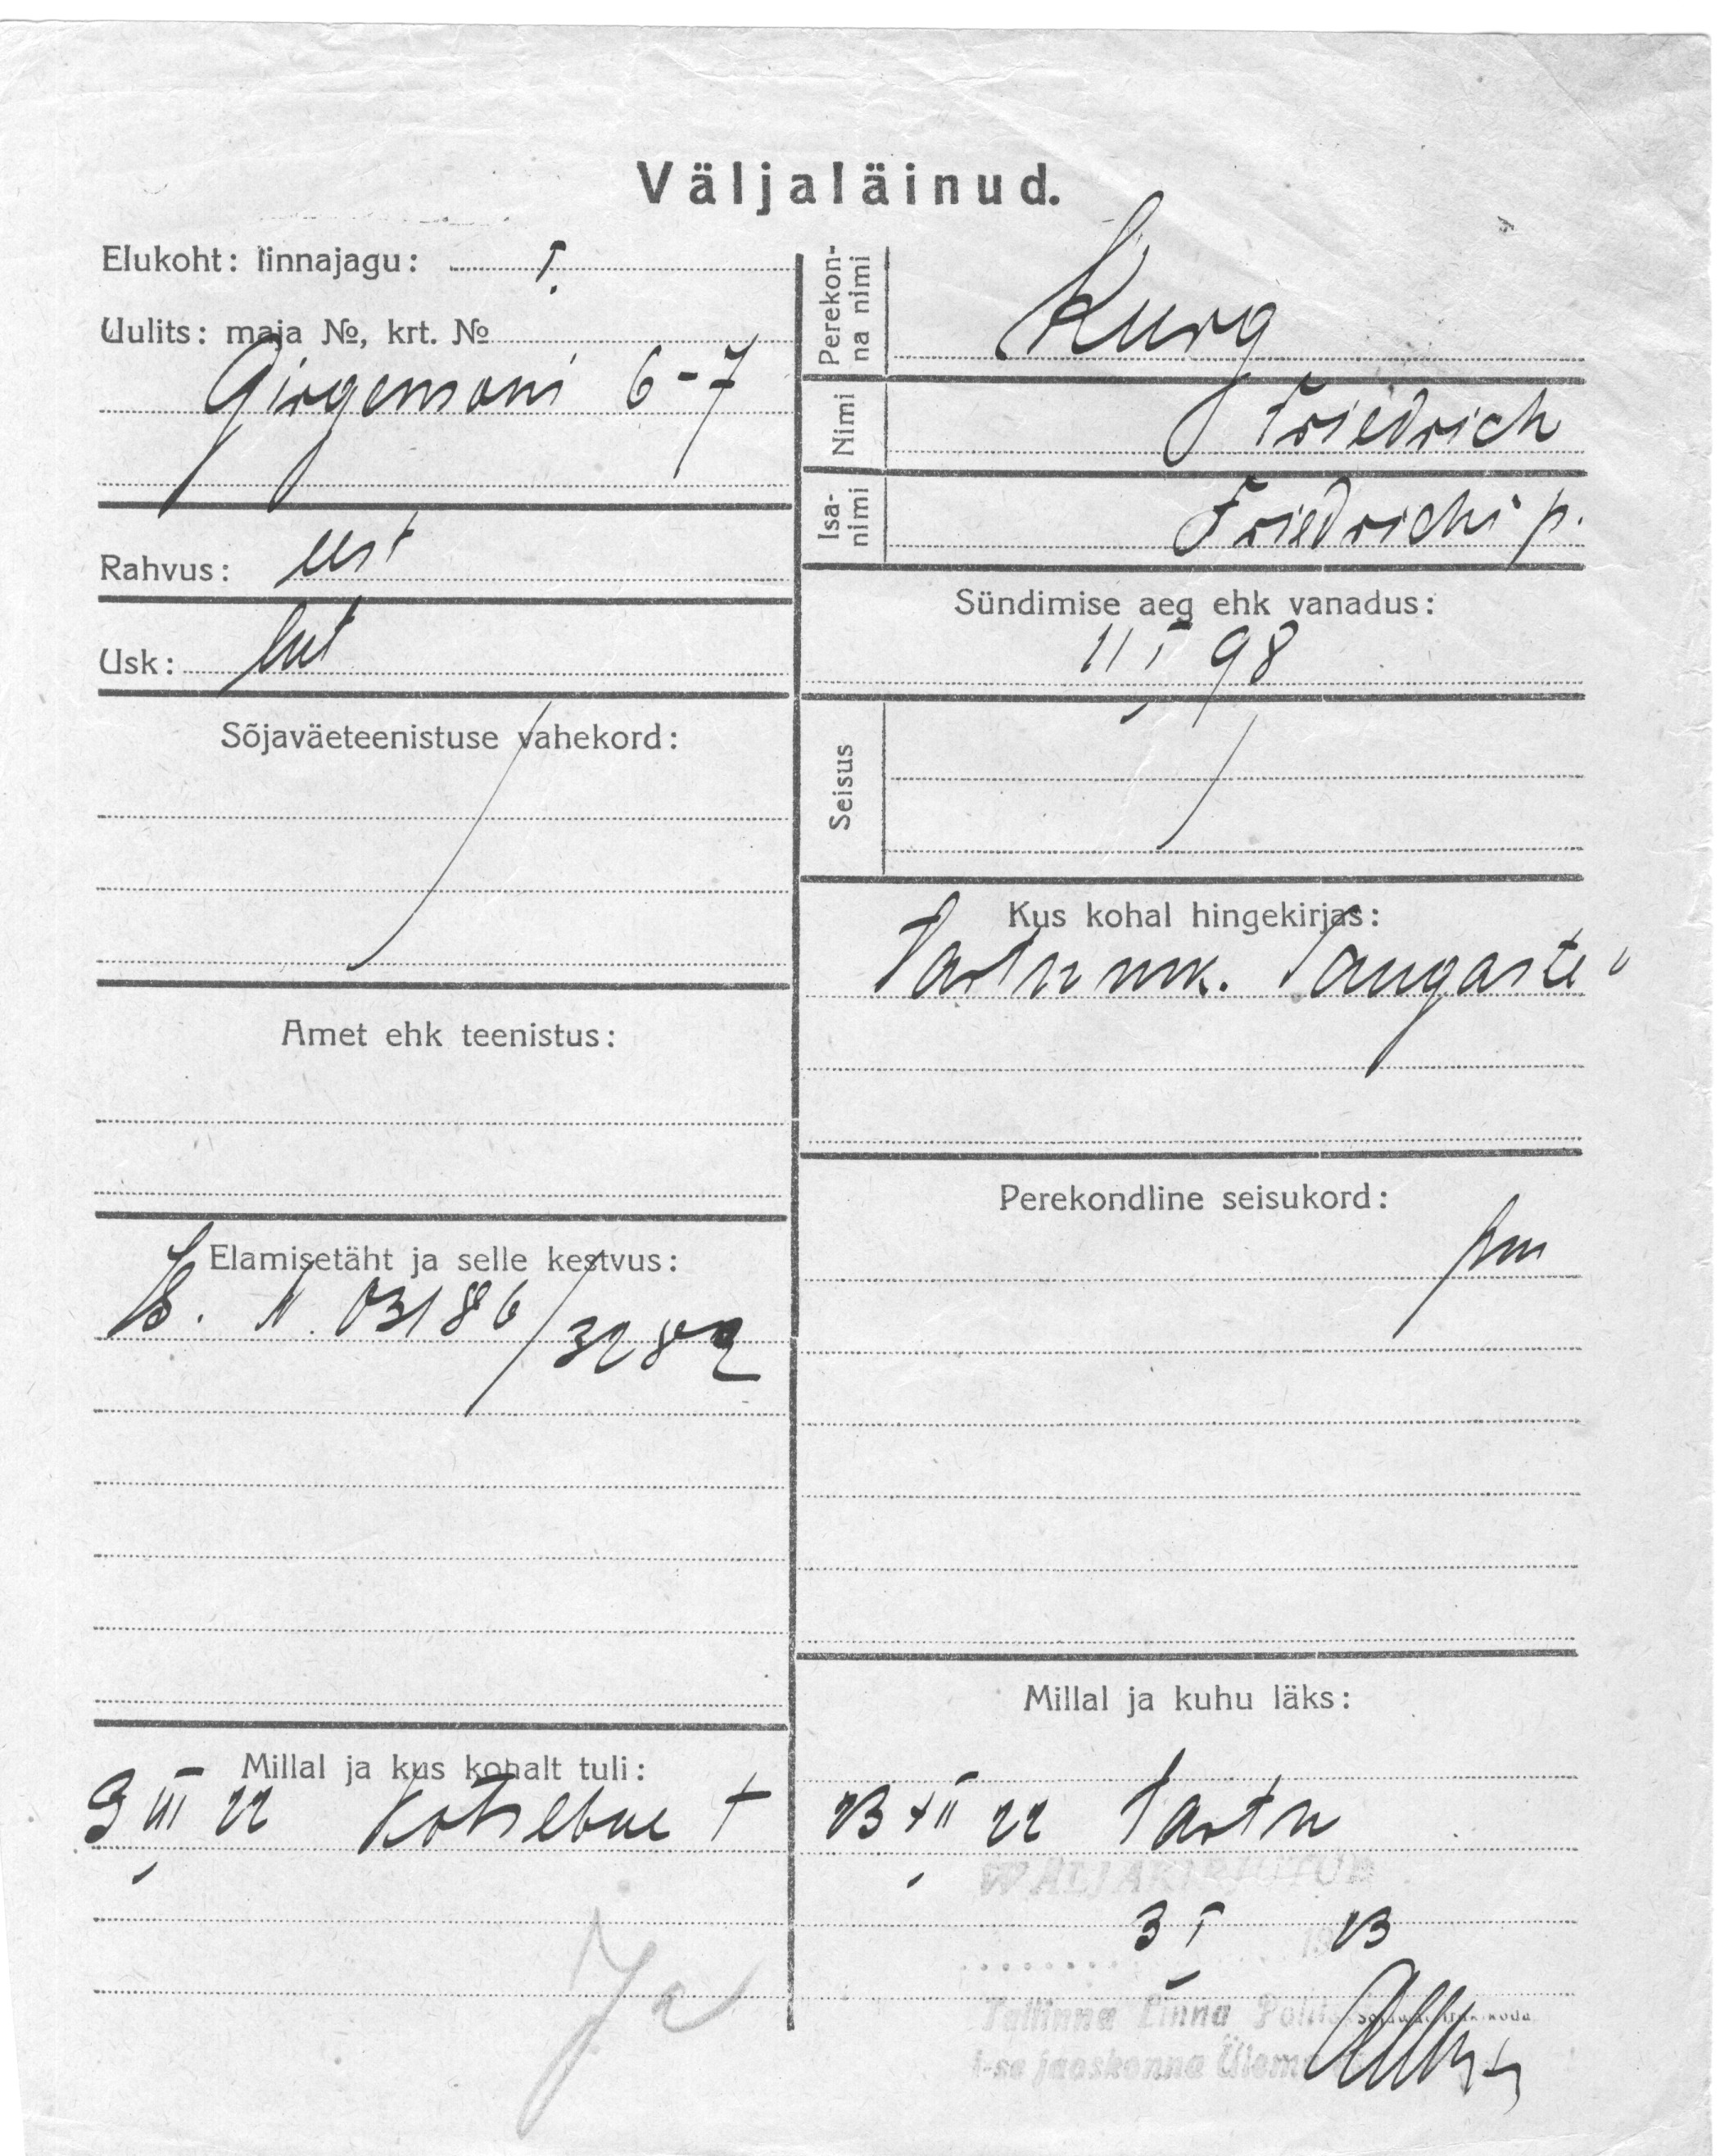 Väljaläinud.
Elukoht: linnajagu: I.
Uulits: maja №, krt. №
Girgensoni 6-7
Rahvus: eest
Usk: lut
Sõjaväeteenistuse vahekord:
Amet ehk teenistus:
Elamisetäht ja selle kestvus:
03186/3282
Millal ja kus kohalt tuli:
9 III 22 Kotsebue t
Ja
Perekonna nimi
Kurg
Nimi
Friedrich
Isanimi
Friedrichi p.
Sündimise aeg ehk vanadus:
11 I 98
Seisus
Kus kohal hingekirjas:
Tartu mk. Sangaste v
Perekondline seisukord:
Millal ja kuhu läks:
23 XII 22 Tartu
WÄLJAKIRJUTUD
3 I 23
Tallinna Linna Polits
I-se jaoskonna Ülem